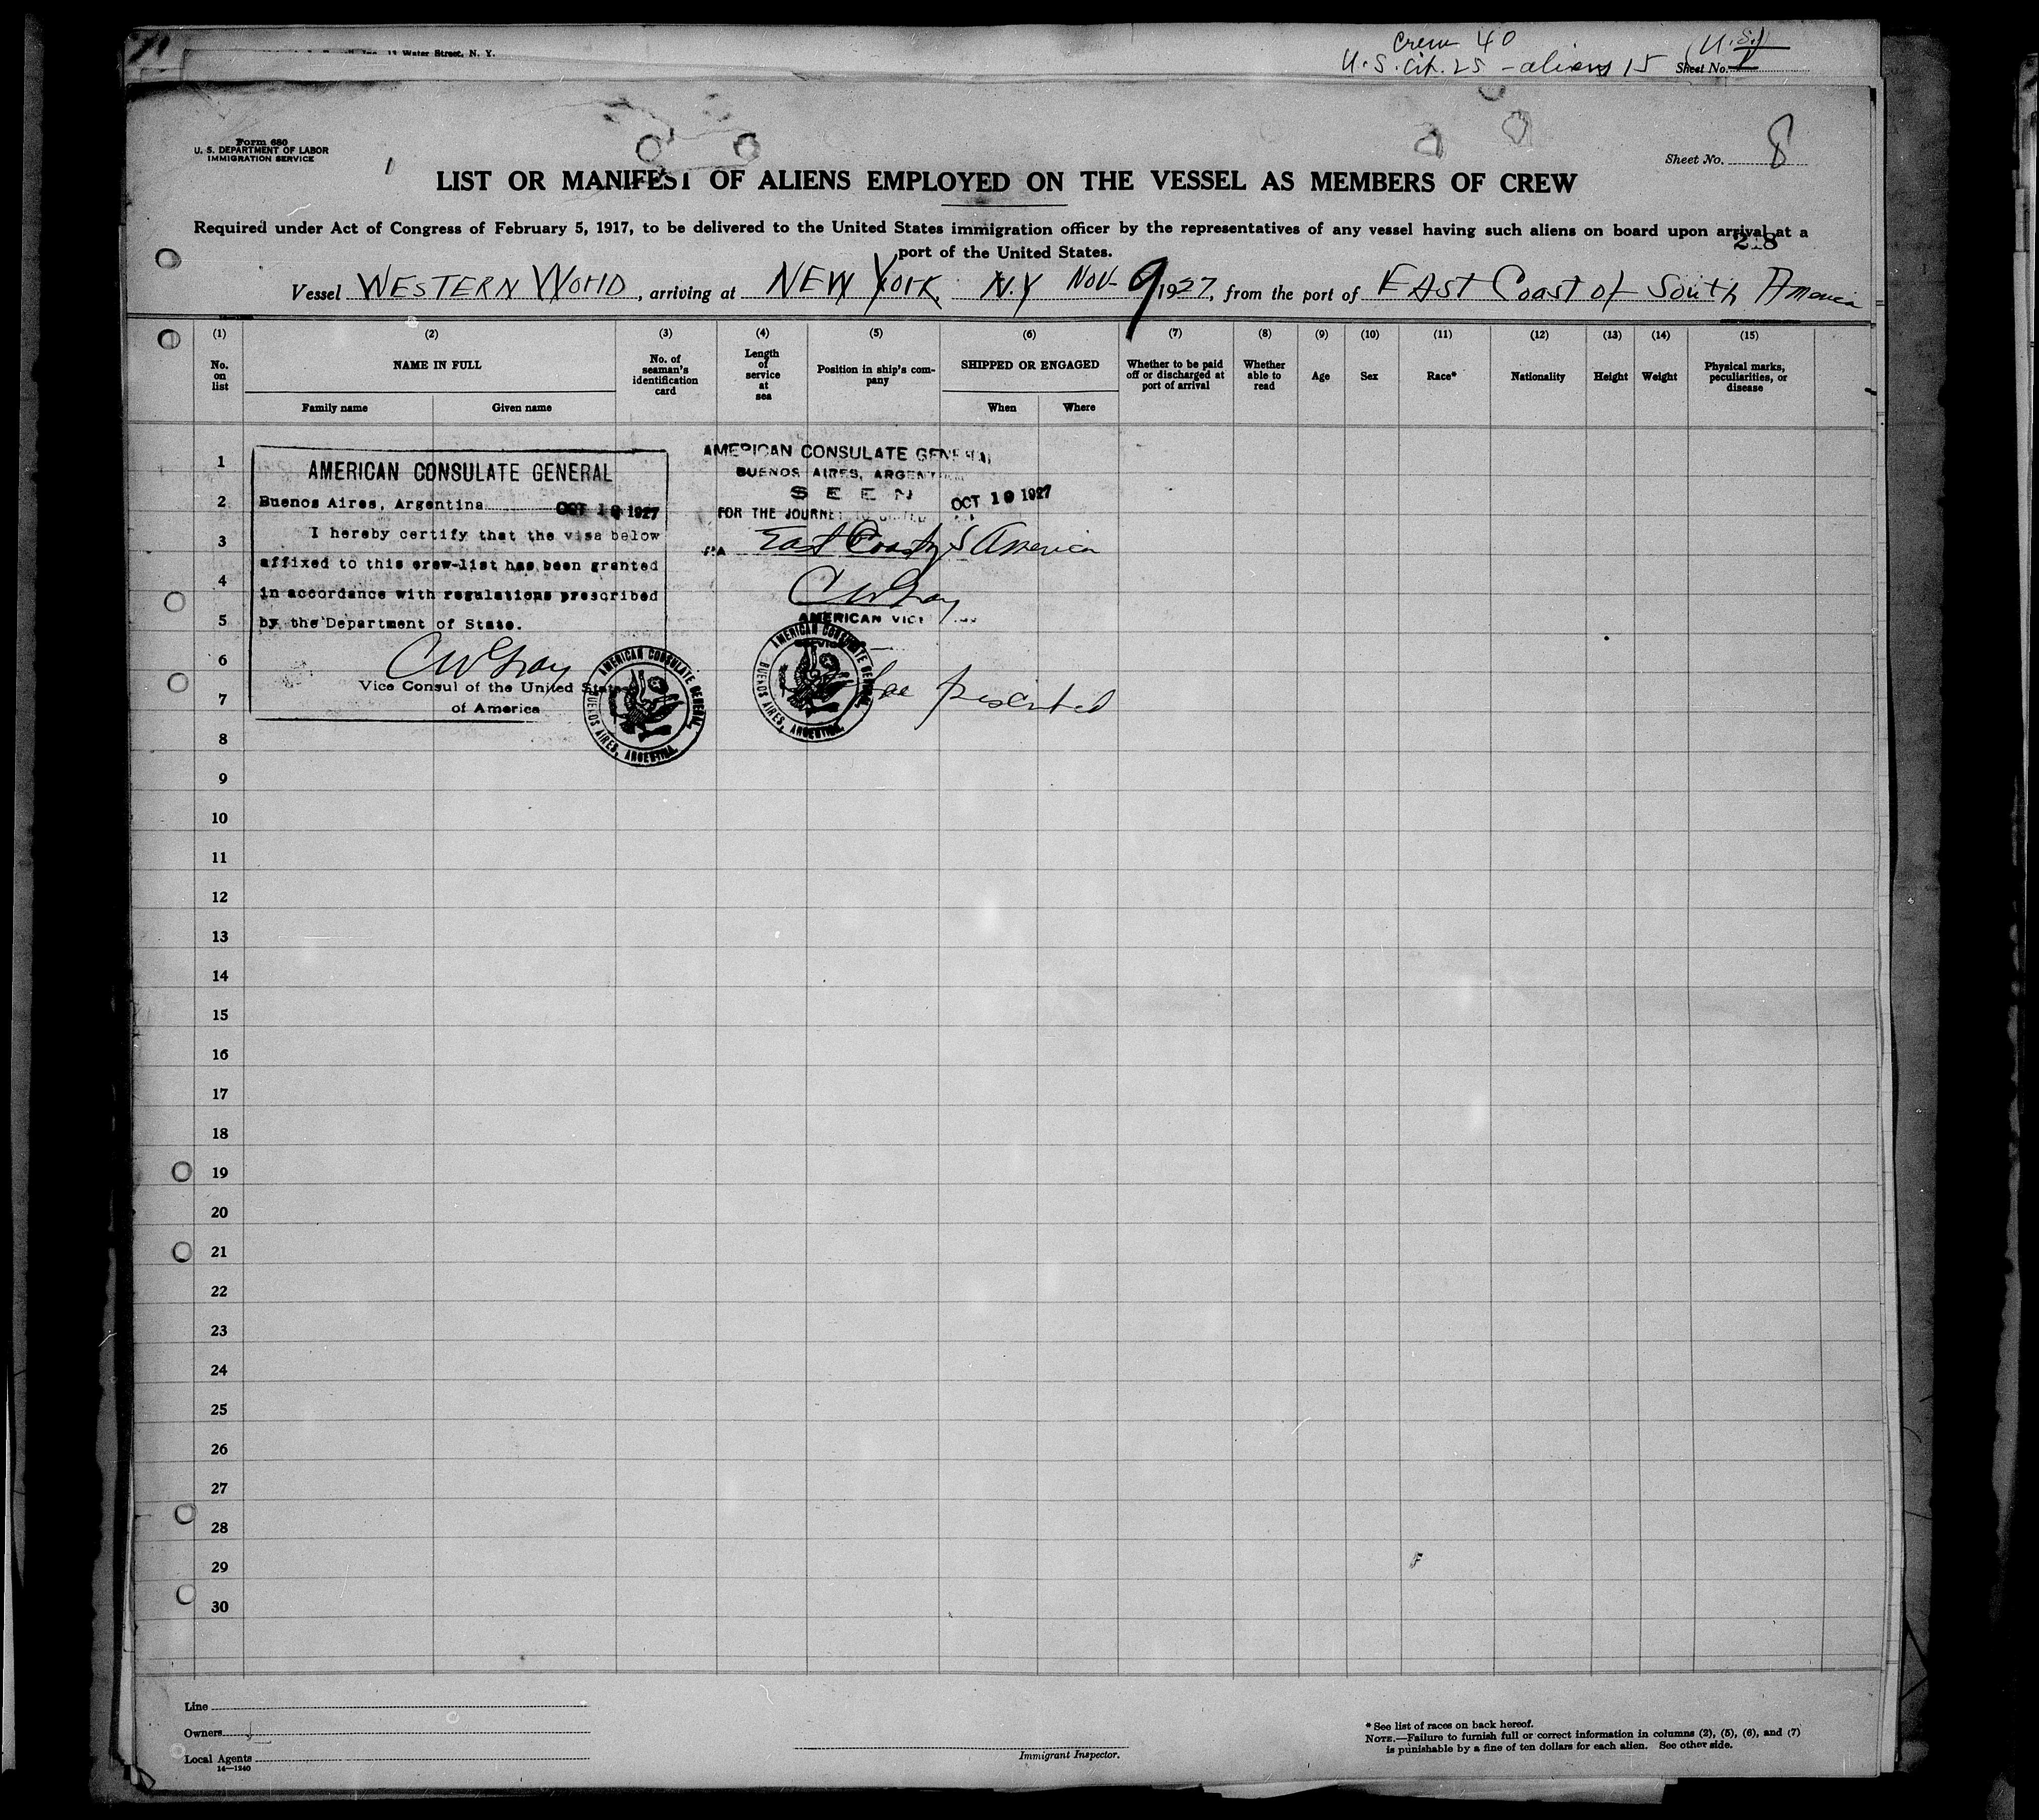 Water Street, N. Y.
Crew 40
U.S. Cit. 25 - aliens 15
(U.S.)
Sheet No. 1
Form 680
U. S. DEPARTMENT OF LABOR
IMMIGRATION SERVICE
Sheet No. 8
LIST OR MANIFEST OF ALIENS EMPLOYED ON THE VESSEL AS MEMBERS OF CREW
Required under Act of Congress of February 5, 1917, to be delivered to the United States immigration officer by the representatives of any vessel having such aliens on board upon arrival at a
port of the United States.
218
Vessel WESTERN WORLD, arriving at NEW YORK, N.Y NOV- 9 1927, from the port of EAST COAST OF South America
(1) (2) (3) (4) (5) (6) (7) (8) (9) (10) (11) (12) (13) (14) (15)
No. on list
NAME IN FULL
Family name
Given name
No. of seaman's identification card
Length of service at sea
Position in ship's com-
pany
SHIPPED OR ENGAGED
When
Where
Whether to be paid off or discharged at port of arrival
Whether able to read
Age
Sex
Race*
Nationality
Height
Weight
Physical marks, peculiarities, or disease
AMERICAN CONSULATE GENERAL
Buenos Aires, Argentina OCT 19 1927
I hereby certify that the visa below
affixed to this crew-list has been granted
in accordance with regulations prescribed
by the Department of State.
CWGray
Vice Consul of the United States
of America
AMERICAN CONSULATE GENERAL
BUENOS AIRES, ARGENTINA.
AMERICAN CONSULATE GENERAL
BUENOS AIRES, ARGENTINA
SEEN
OCT 19 1927
FOR THE JOURNEY TO UNITED
VIA East Coast of S America
CWGray
AMERICAN VICE
AMERICAN CONSULATE GENERAL
BUENOS AIRES, ARGENTINA.
presented
1
2
3
4
5
6
7
8
9
10
11
12
13
14
15
16
17
18
19
20
21
22
23
24
25
26
27
28
29
30
Line
Owners
Local Agents
14—1240
Immigrant Inspector.
* See list of races on back hereof.
NOTE.—Failure to furnish full or correct information in columns (2), (5), (6), and (7)
is punishable by a fine of ten dollars for each alien. See other side.